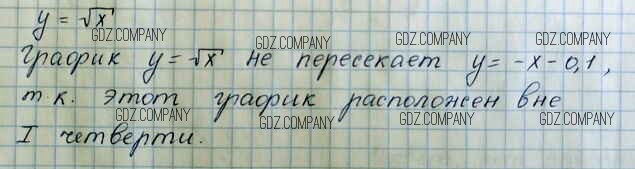 y = √x
GDZ.COMPANY GDZ.COMPANY GDZ.COMPANY
График y = √x не пересекает y = -x - 0,1,
GDZ.COMPANY GDZ.COMPANY GDZ.COMPANY
т.к. этот график расположен вне
GDZ.COMPANY GDZ.COMPANY GDZ.COMPANY
I четверти.